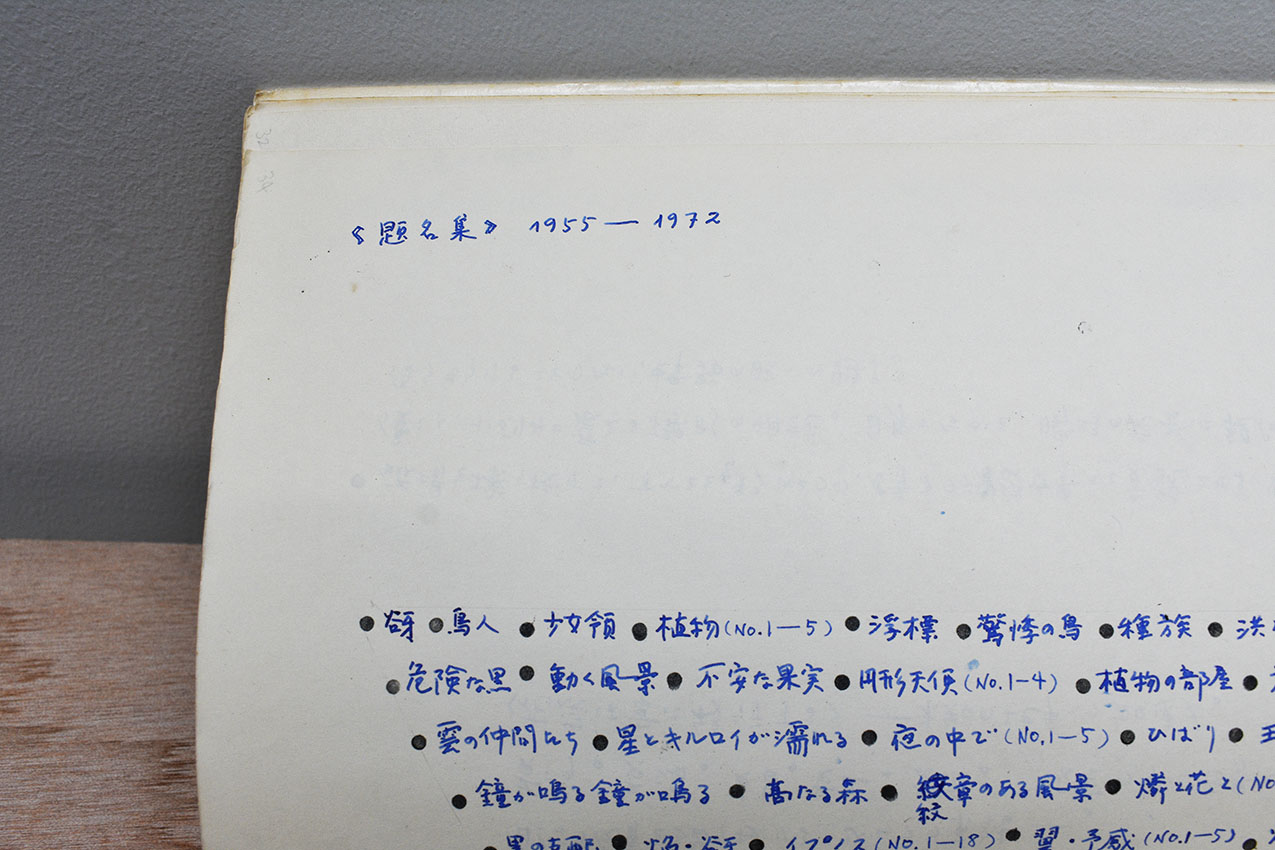 《題名集》 1955—1972
●谺 ●鳥人 ●少女領 ●植物(No.1—5) ●浮標 ●驚悸の鳥 ●種族 ●洪
●危険な黒 ●動く風景 ●不安な果実 ●円形天使(No.1-4) ●植物の部屋 ●
●雲の仲間たち ●星とキルロイが濡れる ●夜の中で(No.1-5) ●ひばり ●王
●鐘が鳴る鐘が鳴る ●高なる森 ●紋章のある風景 ●燐と花と(No
●黒の支配 ●焔・谺 ●イプノス(No.1-18) ●翼・予感(No.1-5)